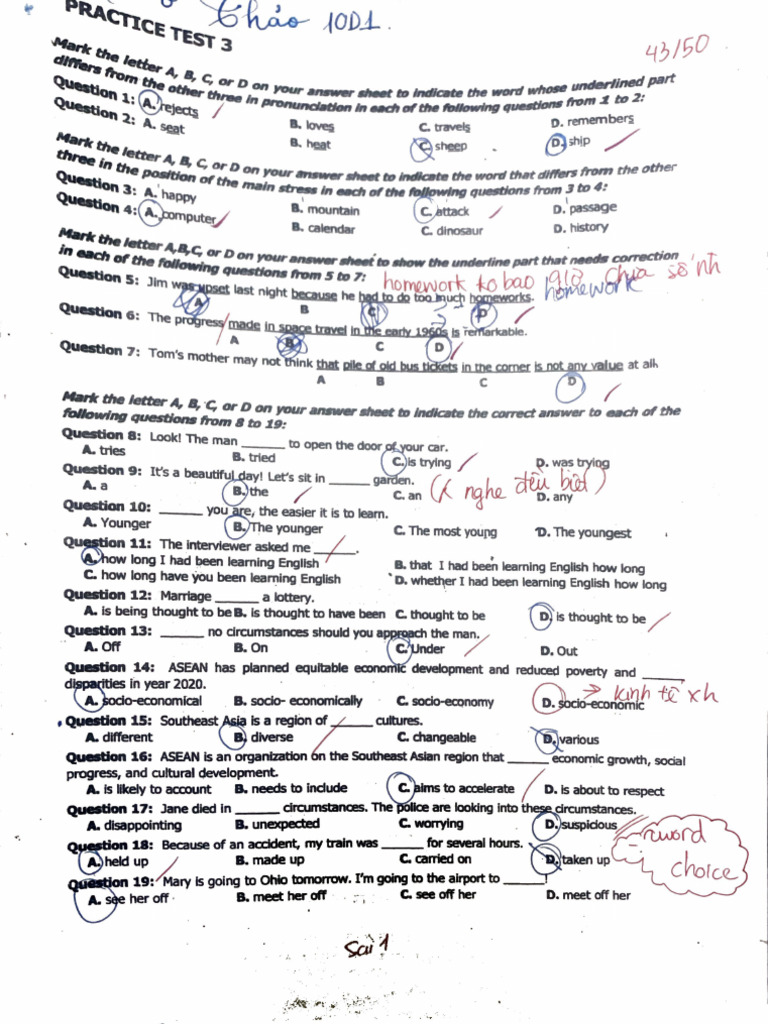 Thảo 10D1.
PRACTICE TEST 3
43/50
Mark the letter A, B, C, or D on your answer sheet to indicate the word whose underlined part
differs from the other three in pronunciation in each of the following questions from 1 to 2:
Question 1: A. rejects B. loves C. travels D. remembers
Question 2: A. seat B. heat C. sheep D. ship
Mark the letter A, B, C, or D on your answer sheet to indicate the word that differs from the other
three in the position of the main stress in each of the following questions from 3 to 4:
Question 3: A. happy B. mountain C. attack D. passage
Question 4: A. computer B. calendar C. dinosaur D. history
Mark the letter A,B,C, or D on your answer sheet to show the underline part that needs correction
in each of the following questions from 5 to 7:
homework ko bao giờ chia số nh
Question 5: Jim was upset last night because he had to do too much homeworks. homework
A B C D
Question 6: The progress made in space travel in the early 1960s is remarkable.
A B C D
Question 7: Tom's mother may not think that pile of old bus tickets in the corner is not any value at all.
A B C D
Mark the letter A, B, C, or D on your answer sheet to indicate the correct answer to each of the
following questions from 8 to 19:
Question 8: Look! The man ______ to open the door of your car.
A. tries B. tried C. is trying D. was trying
Question 9: It's a beautiful day! Let's sit in ______ garden.
A. a B. the C. an D. any
nghe đều biết)
Question 10: ______ you are, the easier it is to learn.
A. Younger B. The younger C. The most young D. The youngest
Question 11: The interviewer asked me ______.
A. how long I had been learning English B. that I had been learning English how long
C. how long have you been learning English D. whether I had been learning English how long
Question 12: Marriage ______ a lottery.
A. is being thought to be B. is thought to have been C. thought to be D. is thought to be
Question 13: ______ no circumstances should you approach the man.
A. Off B. On C. Under D. Out
Question 14: ASEAN has planned equitable economic development and reduced poverty and ______
disparities in year 2020.
→ kinh tế xh
A. socio-economical B. socio- economically C. socio-economy D. socio-economic
Question 15: Southeast Asia is a region of ______ cultures.
A. different B. diverse C. changeable D. various
Question 16: ASEAN is an organization on the Southeast Asian region that ______ economic growth, social
progress, and cultural development.
A. is likely to account B. needs to include C. aims to accelerate D. is about to respect
Question 17: Jane died in ______ circumstances. The police are looking into these circumstances.
A. disappointing B. unexpected C. worrying D. suspicious
word
choice
Question 18: Because of an accident, my train was ______ for several hours.
A. held up B. made up C. carried on D. taken up
Question 19: Mary is going to Ohio tomorrow. I'm going to the airport to ______!
A. see her off B. meet her off C. see off her D. meet off her
Sai 1